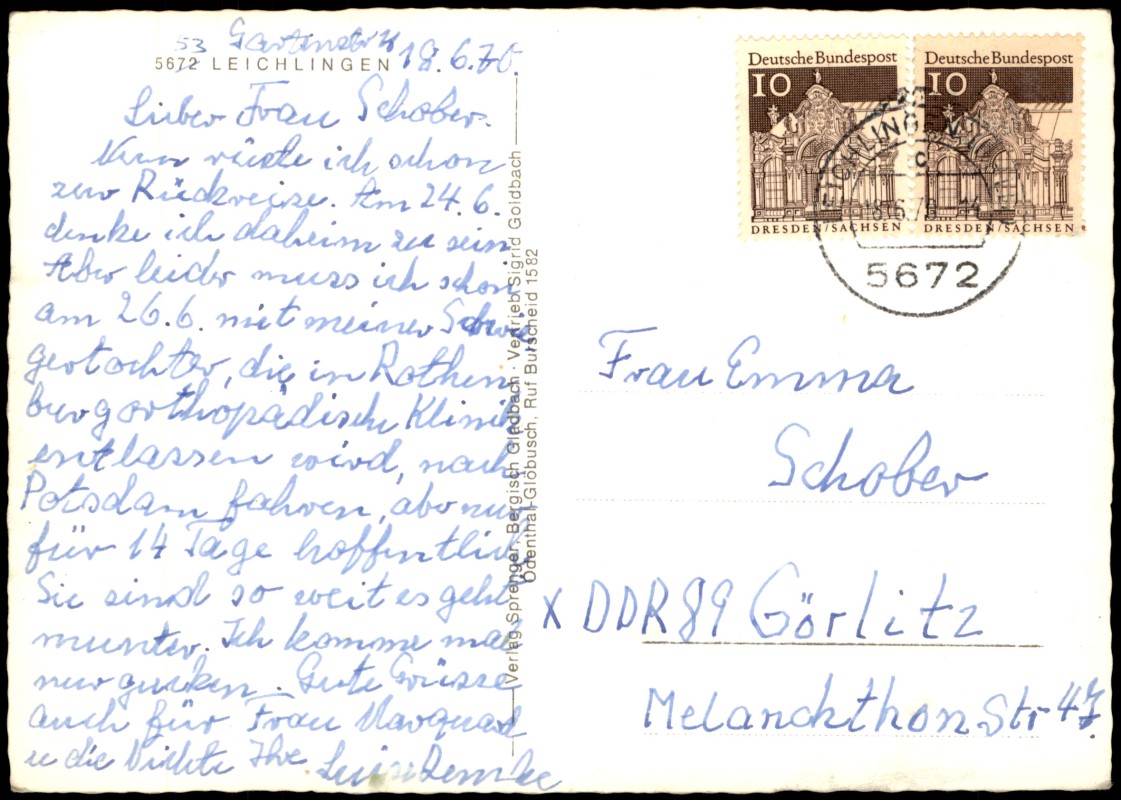 53 Gartenstr
5672 LEICHLINGEN 18.6.70.
Lieber Frau Schober.
Nun rüste ich schon
zur Rückreise. Am 24.6.
denke ich daheim zu sein
Aber leider muss ich schon
am 26.6. mit meiner Schwie
gertochter, die in Rothen
burg orthopädische Klinik
entlassen wird, nach
Potsdam fahren, aber nur
für 14 Tage hoffentlich
Sie sind so weit es geht
munter. Ich komme mal
nur gucken. Gute Grüsse
auch für Frau Marquard
u die Nichte Ihre
Verlag Sprenger, Bergisch Gladbach · Vertrieb Sigrid Goldbach
Odenthal-Glöbusch, Ruf Burscheid 1582
Deutsche Bundespost
10
DRESDEN/SACHSEN
Deutsche Bundespost
10
DRESDEN/SACHSEN
18.6.70
5672
Frau Emma
Schober
X DDR 89 Görlitz
Melanckthon Str 47